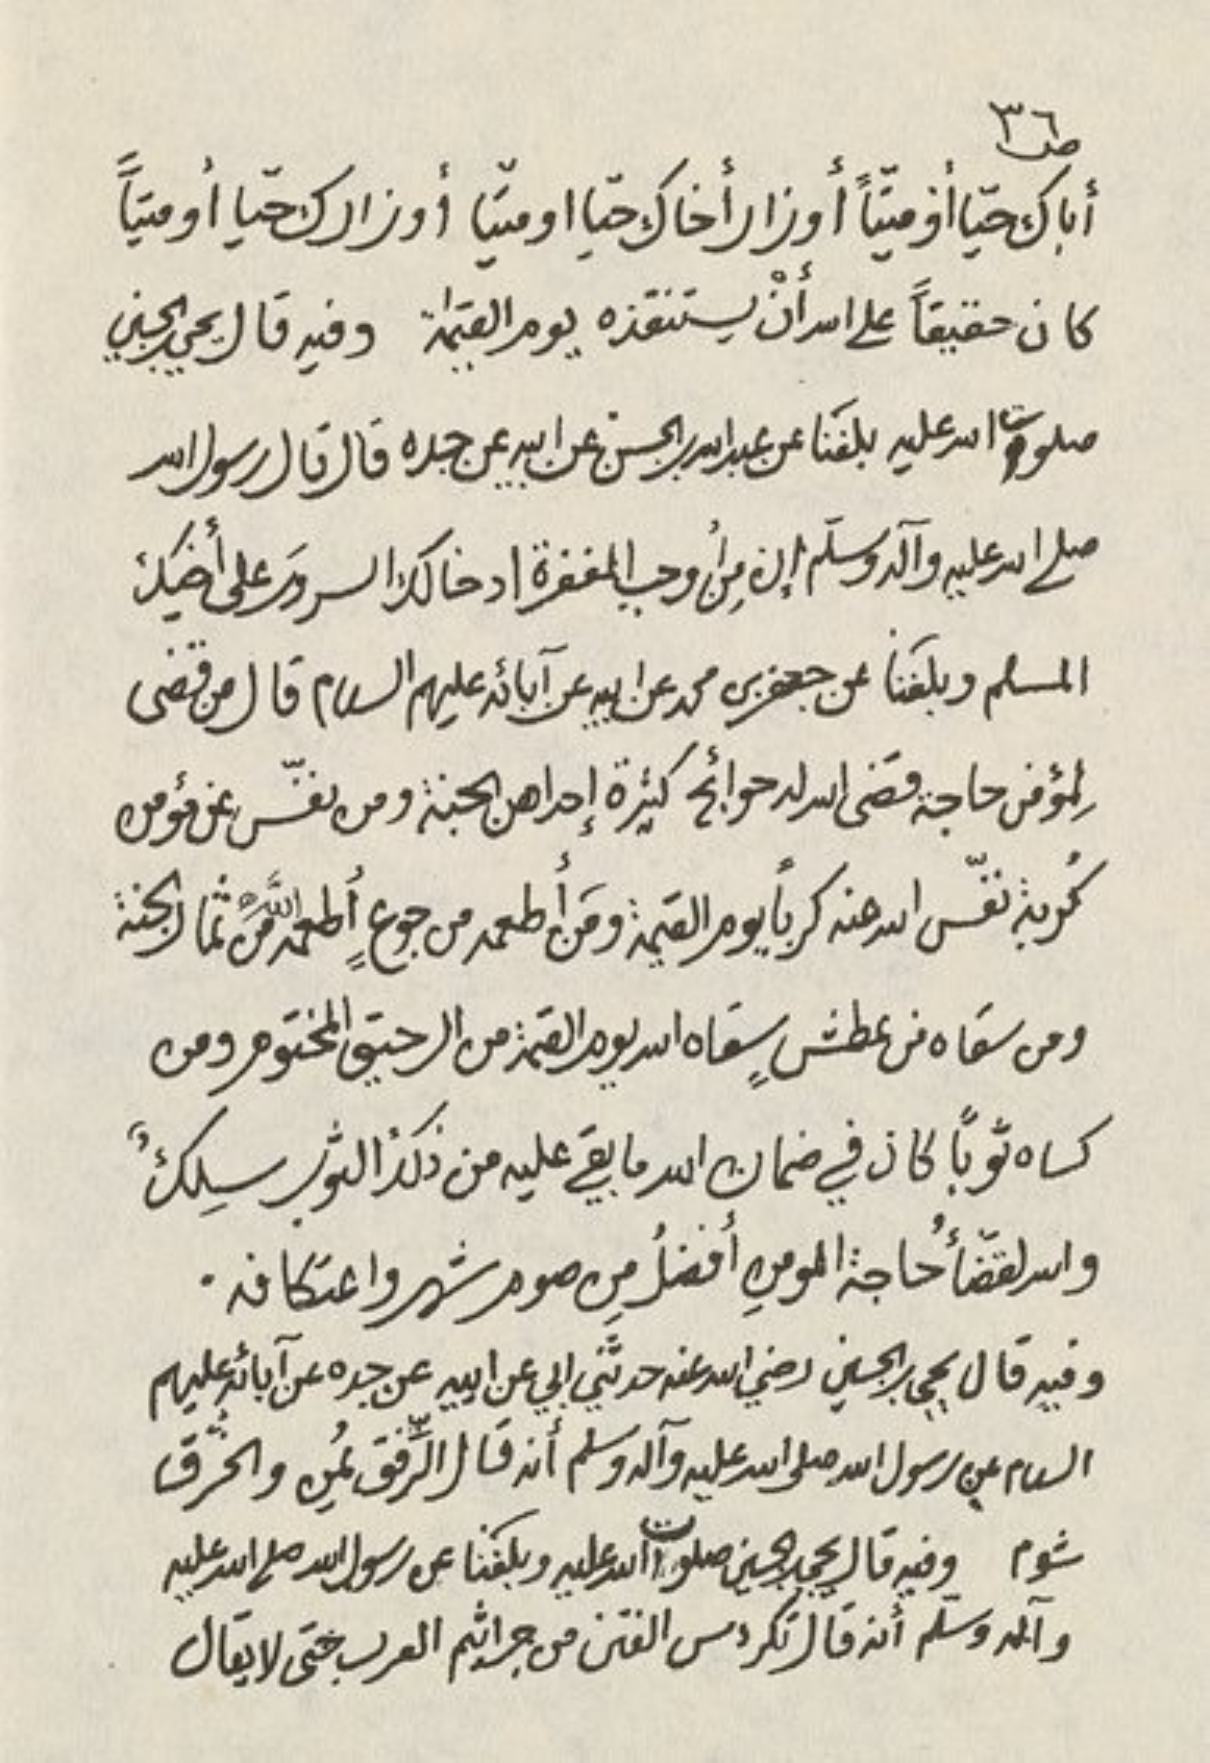 ص٣٦
أباك حيّا أو ميّتاً أو زار أخاك حيّا او ميتّيا أو زارك حيّا أو ميتاً
كان حقيقاً على الله أنْ يستنقذه يوم القيمة وفيه قال يحيى بن الحسين
صلوات الله عليه بلغنا عن عبد الله بن الحسن عن ابيه عن جده قال قال رسول الله
صلى الله عليه وآله وسلّم إن مِن أوجب المغفرة ادخالك السرور على أخيك
المسلم وبلغنا عن جعفر بن محمد عن ابيه عن آبائه عليهم السلام قال من قضى
لمؤمن حاجة قضى الله له حوائج كثيرة إحداهن الجنة ومن نفّس عن مؤمن
كُربة نفّس الله عنه كرباً يوم القيمة ومَن أطعمه من جوعٍ أطعمه اللَّهُ مِنْ ثمار الجنة
ومن سقاه من عطشٍ سقاه الله يوم القيمة من الرحيق المختوم ومن
كساه ثوباً كان في ضمان الله ما بقي عليه من ذلك الثوب سلكٌ
والله لقضّاءُ حاجة المومنِ أفضلُ مِن صوم شهر واعتكافه .
وفيه قال يحيى بن الحسين رضي الله عنه حدثّني ابي عن ابيه عن جده عن آبائه عليهم
السلام عن رسول الله صلى الله عليه وآله وسلم أنه قال الرِّفق يُمن والخُرق
شوم وفيه قال يحيى بن الحسين صلوات الله عليه وبلغنا عن رسول الله صلى الله عليه
وآله وسلّم أنه قال تكردس الفتن من جراثيم العرب حتى لا يقال